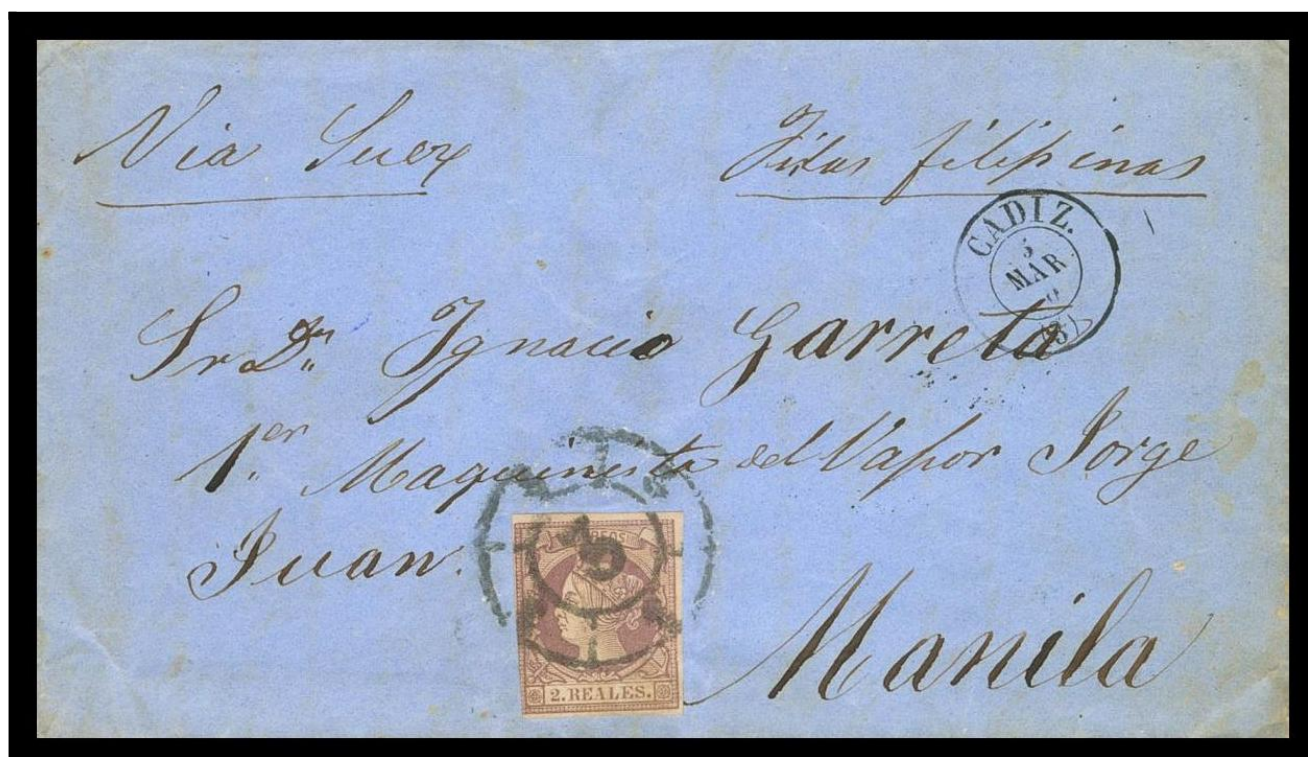 Via Suez
Islas filipinas
CADIZ.
5
MAR
Sr Dn. Ignacio Garreta
1.er Maquinista del Vapor Jorge
Juan.
CORREOS
2.REALES.
Manila